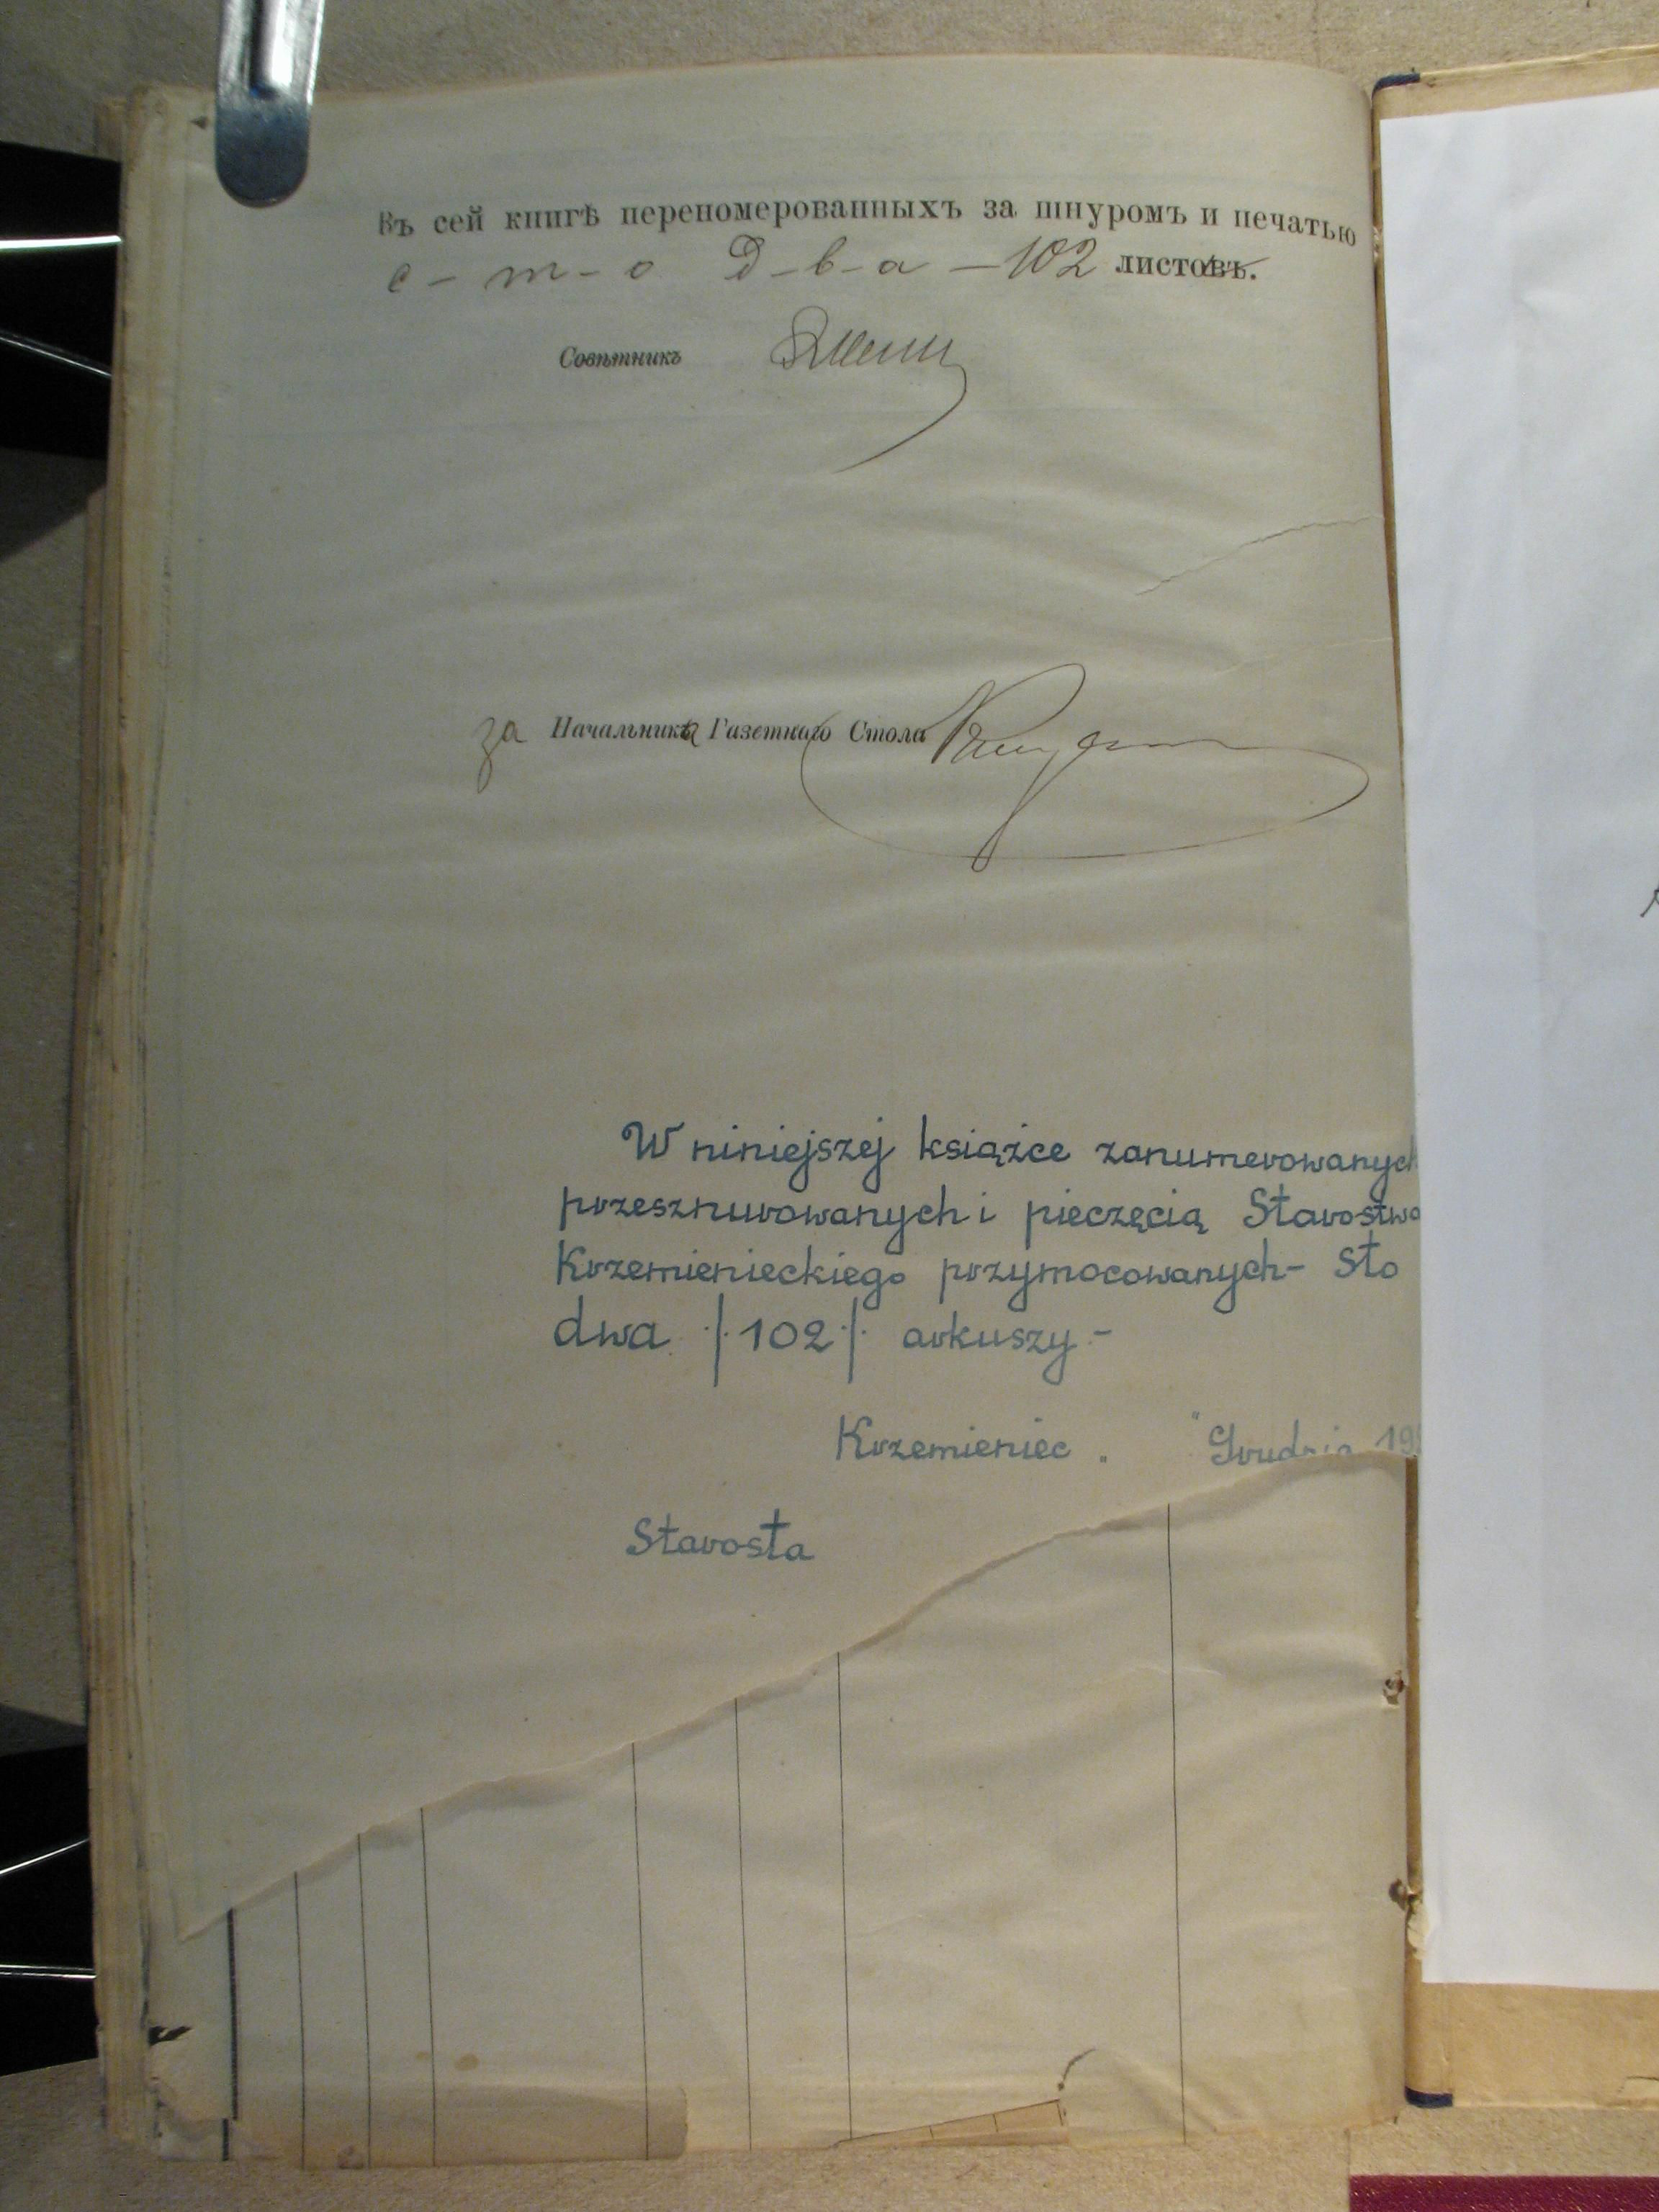 Въ сей книгѣ переномерованныхъ за шнуромъ и печатью
с - т - о д - в - а - 102 листовъ.
Совѣтникъ
за Начальника Газетнаго Стола
W niniejszej książce zanumerowanych
przesznurowanych i pieczęcią Starostwa
Krzemienieckiego przymocowanych - Sto
dwa /102/ arkuszy -
Krzemieniec " " Grudnia 19
Starosta